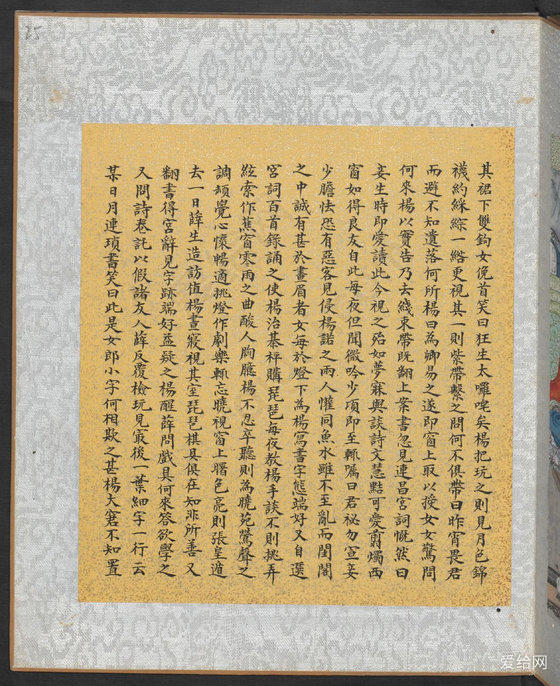 其裙下雙鈎女俛首笑曰狂生太囉唣矣楊把玩之則見月色錦
襪約綵綜一綹更視其一則紫帶繫之問何不俱帶曰昨宵畏君
而避不知遺落何所楊曰為卿易之遂即窗上取以授女女驚問
何來楊以實告乃去綫束帶既翻上案書忽見連昌宮詞慨然曰
妾生時即愛讀此今視之殆如夢寐與談詩文慧黠可愛翦燭西
窗如得良友自此每夜但聞微吟少項即至輒囑曰君祕勿宣妾
少膽怯恐有惡客見侵楊諾之兩人懽同魚水雖不至亂而閨閣
之中誠有甚於畫眉者女每於燈下為楊寫書字態端好又自選
宮詞百首錄誦之使楊治棊枰購琵琶每夜教楊手談不則挑弄
絃索作蕉窗零雨之曲酸人胸臆楊不忍卒聽則為曉苑鶯聲之
調頓覺心懷暢適挑燈作劇樂輒忘曉視窗上曙色亮則張皇遁
去一日薛生造訪值楊晝寢視其室琵琶棋具俱在知非所善又
翻書得宮辭見字跡端好益疑之楊醒薛問戲具何來答欲學之
又問詩卷託以假諸友人薛反覆檢玩見最後一葉細字一行云
某日月連瑣書笑曰此是女郎小字何相欺之甚楊大窘不知置
25
爱给网